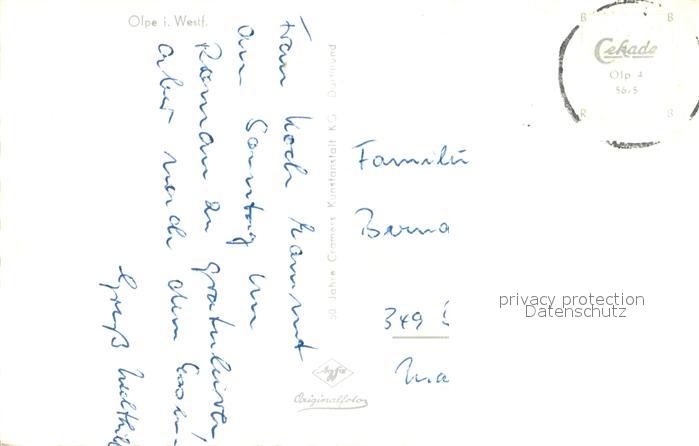 Olpe i. Westf.
Frau Koch kommt
am Sonntag um
Roman zu gratulieren,
aber nach dem
Gruß
50 Jahre Cramers Kunstanstalt KG Dortmund
Agfa
Originalfoto
B B
Cekade
Olp 4
56/5
R R
Familie
Berna
349
privacy protection
Datenschutz